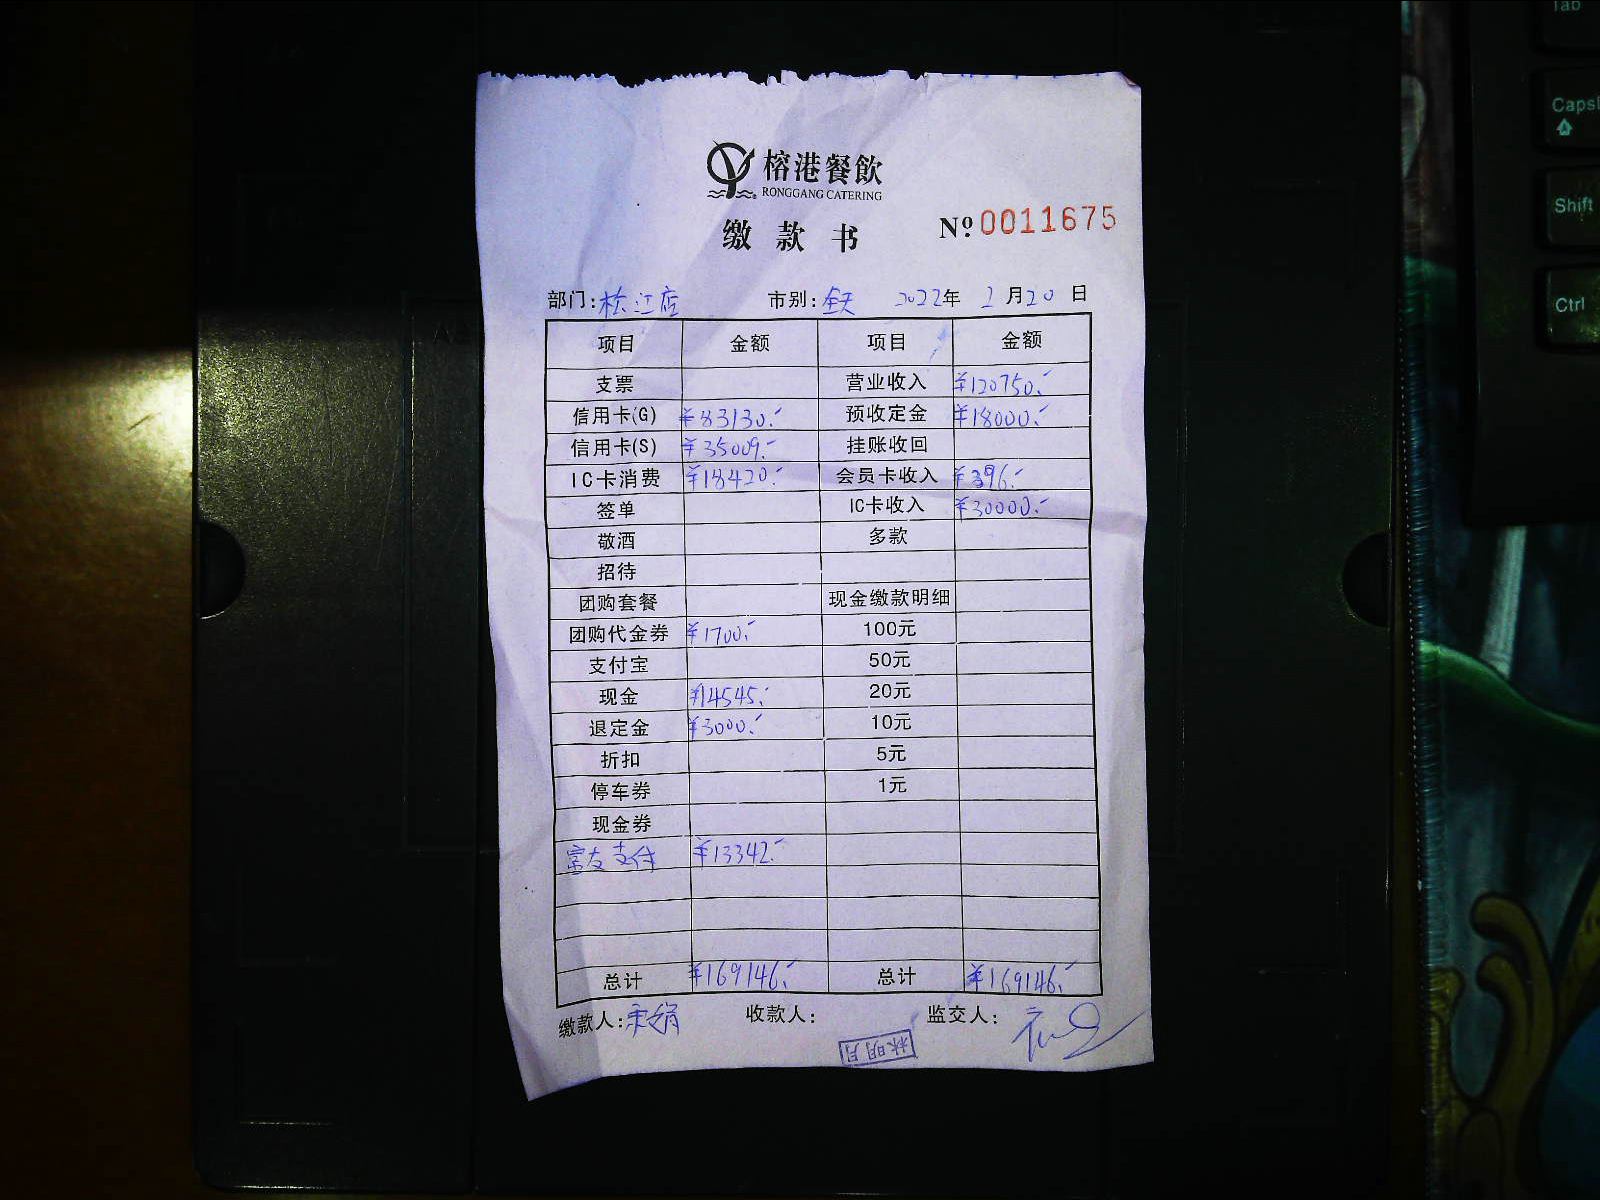 榕港餐飲
RONGGANG CATERING
缴款书
Nº 0011675
部门:松江店 市别:全天 2022年 2月20日
项目 金额 项目 金额
支票 营业收入 ¥120750.-
信用卡(G) ¥83130.- 预收定金 ¥18000.-
信用卡(S) ¥35009.- 挂账收回
IC卡消费 ¥18420.- 会员卡收入 ¥396.-
签单 IC卡收入 ¥30000.-
敬酒 多款
招待
团购套餐 现金缴款明细
团购代金券 ¥1700.- 100元
支付宝 50元
现金 ¥14545.- 20元
退定金 ¥3000.- 10元
折扣 5元
停车券 1元
现金券
富友支付 ¥13342.-
总计 ¥169146.- 总计 ¥169146.-
缴款人: 收款人: 监交人:
林明月
Tab
Caps
Shift
Ctrl